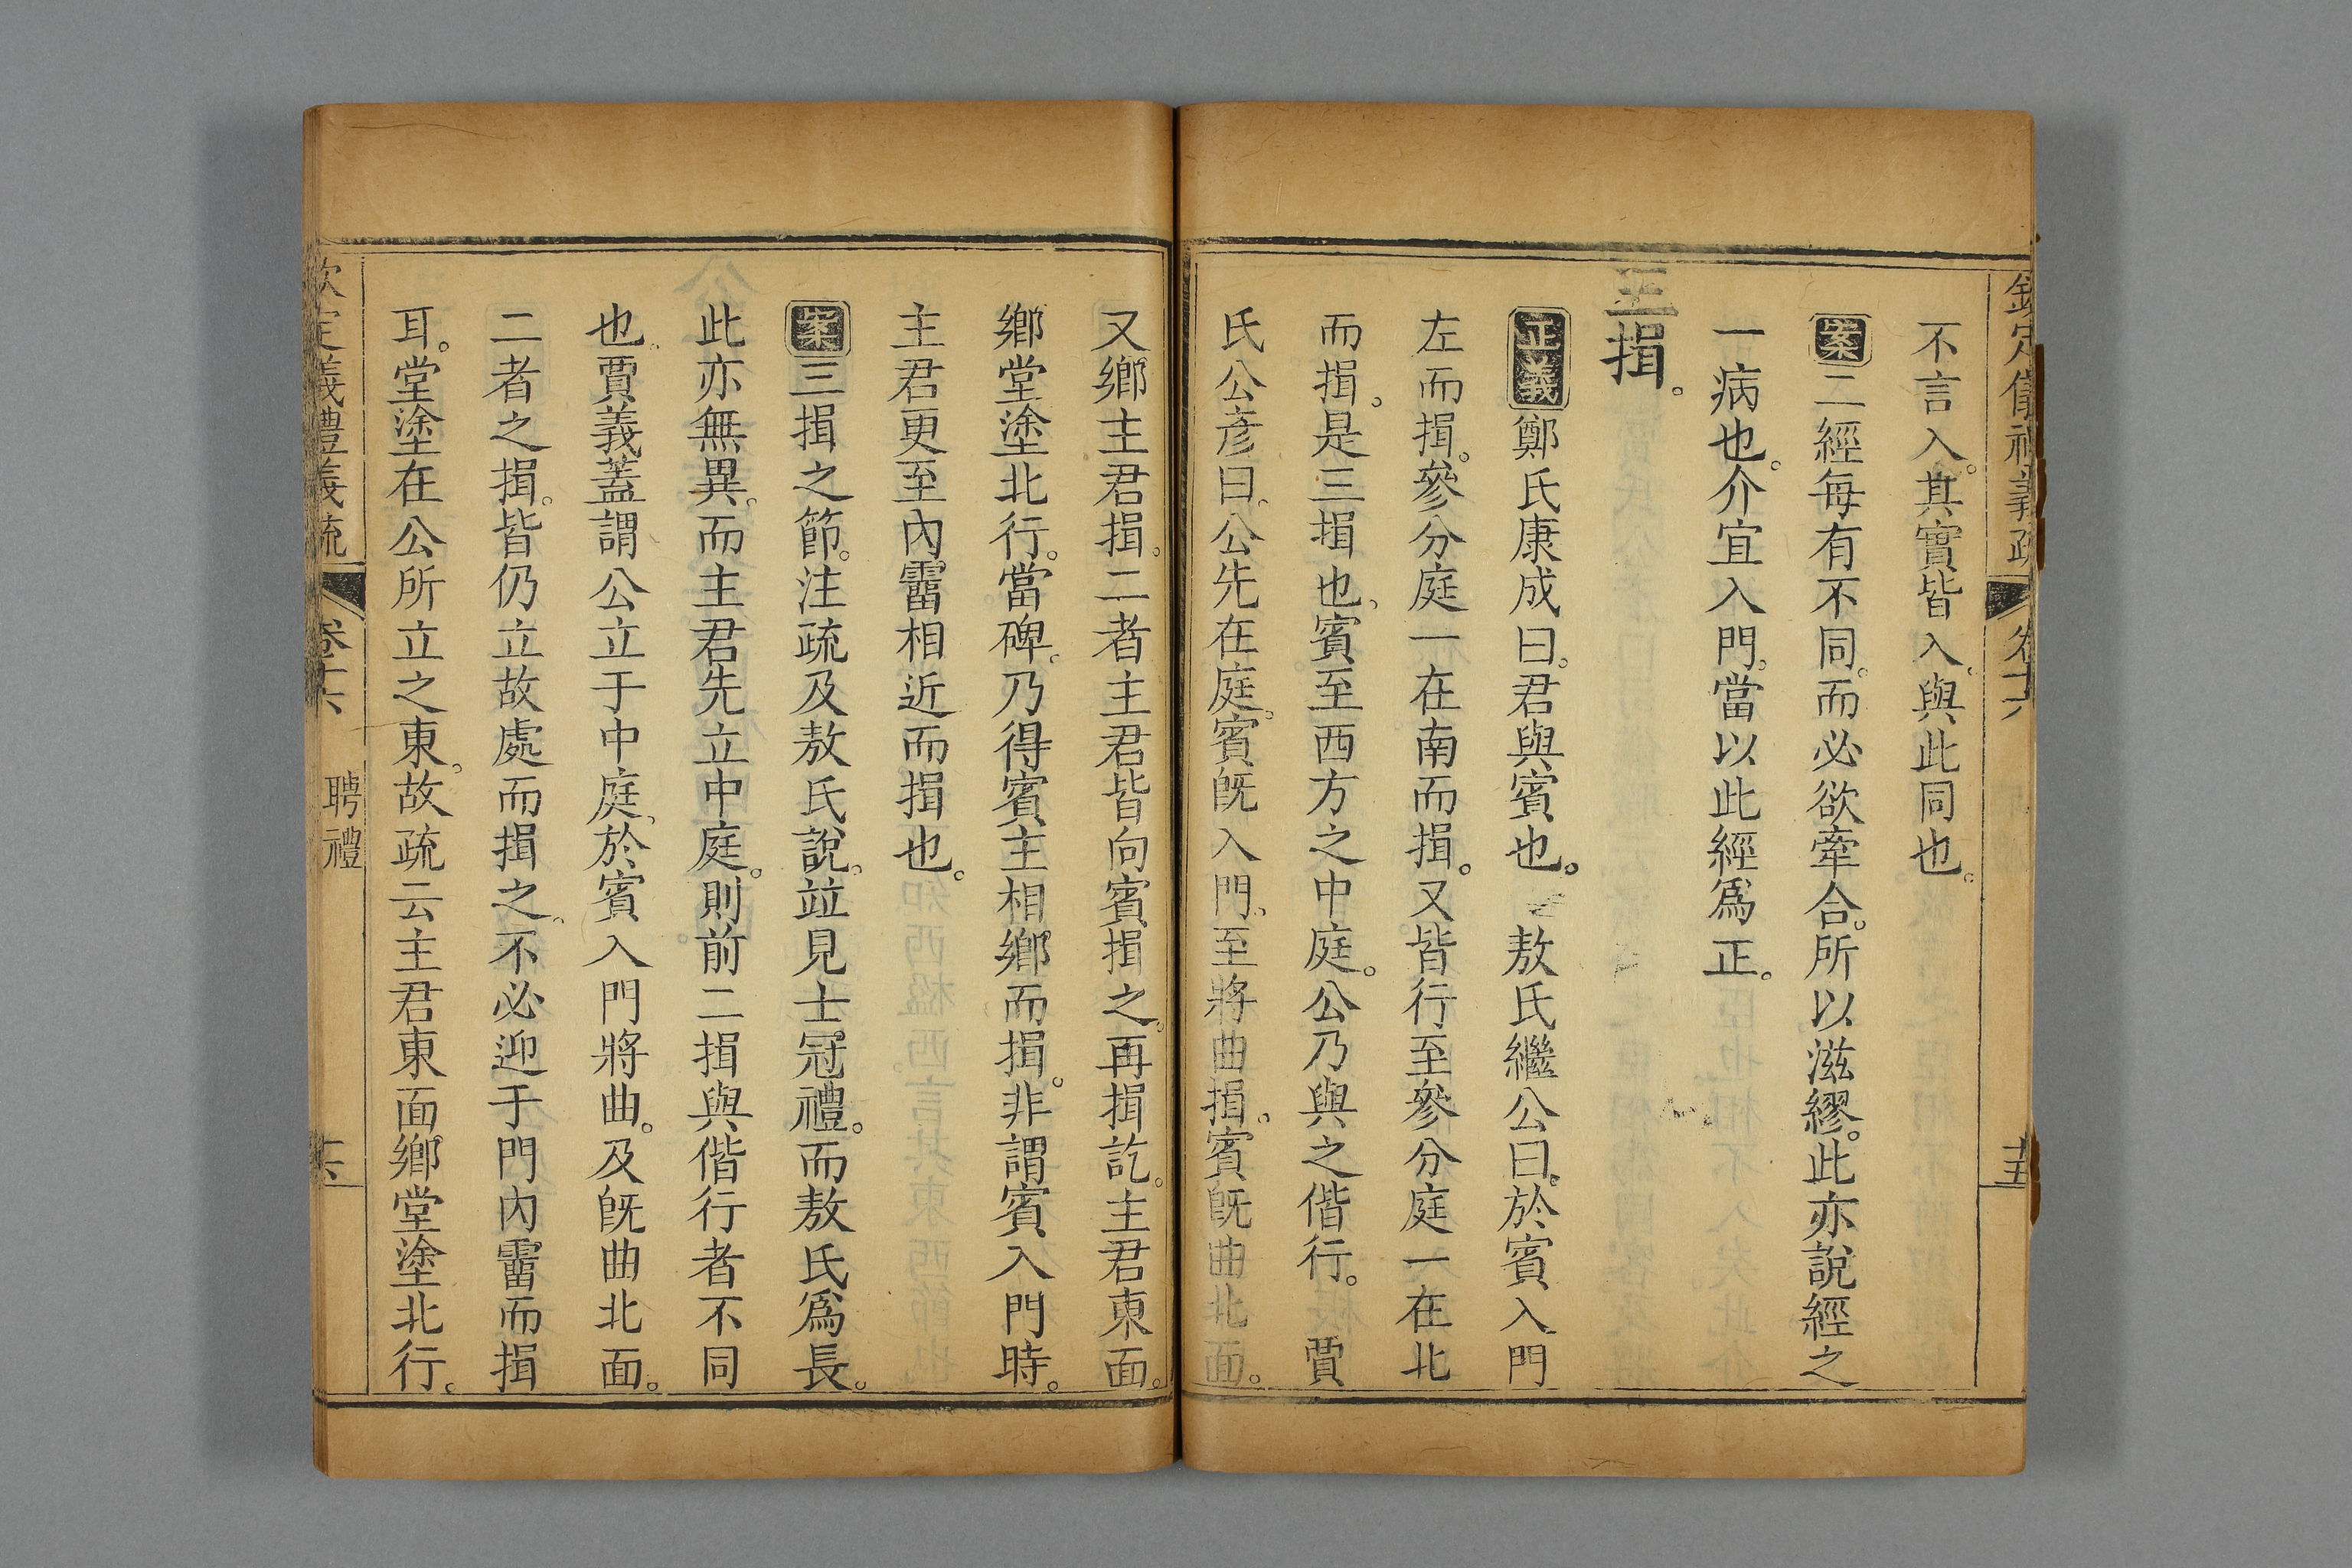 不言入。其實皆入。與此同也。
案二經每有不同。而必欲牽合。所以滋繆。此亦說經之
一病也。介宜入門。當以此經爲正。
三揖。
正義鄭氏康成曰。君與賓也。敖氏繼公曰。於賓入門
左而揖。參分庭一在南而揖。又皆行至參分庭一在北
而揖。是三揖也。賓至西方之中庭。公乃與之偕行。賈
氏公彥曰。公先在庭。賓旣入門。至將曲揖。賓旣曲北面。
又鄉主君揖。二者主君皆向賓揖之。再揖訖。主君東面。
鄉堂塗北行。當碑。乃得賓主相鄉而揖。非謂賓入門時。
主君更至內霤相近而揖也。
案三揖之節。注疏及敖氏說。竝見士冠禮。而敖氏爲長。
此亦無異。而主君先立中庭。則前二揖與偕行者不同
也。賈義蓋謂公立于中庭。於賓入門將曲。及旣曲北面。
二者之揖。皆仍立故處而揖之。不必迎于門內霤而揖
耳。堂塗在公所立之東。故疏云主君東面鄉堂塗北行。
欽定義禮義疏 卷十六 聘禮 十六